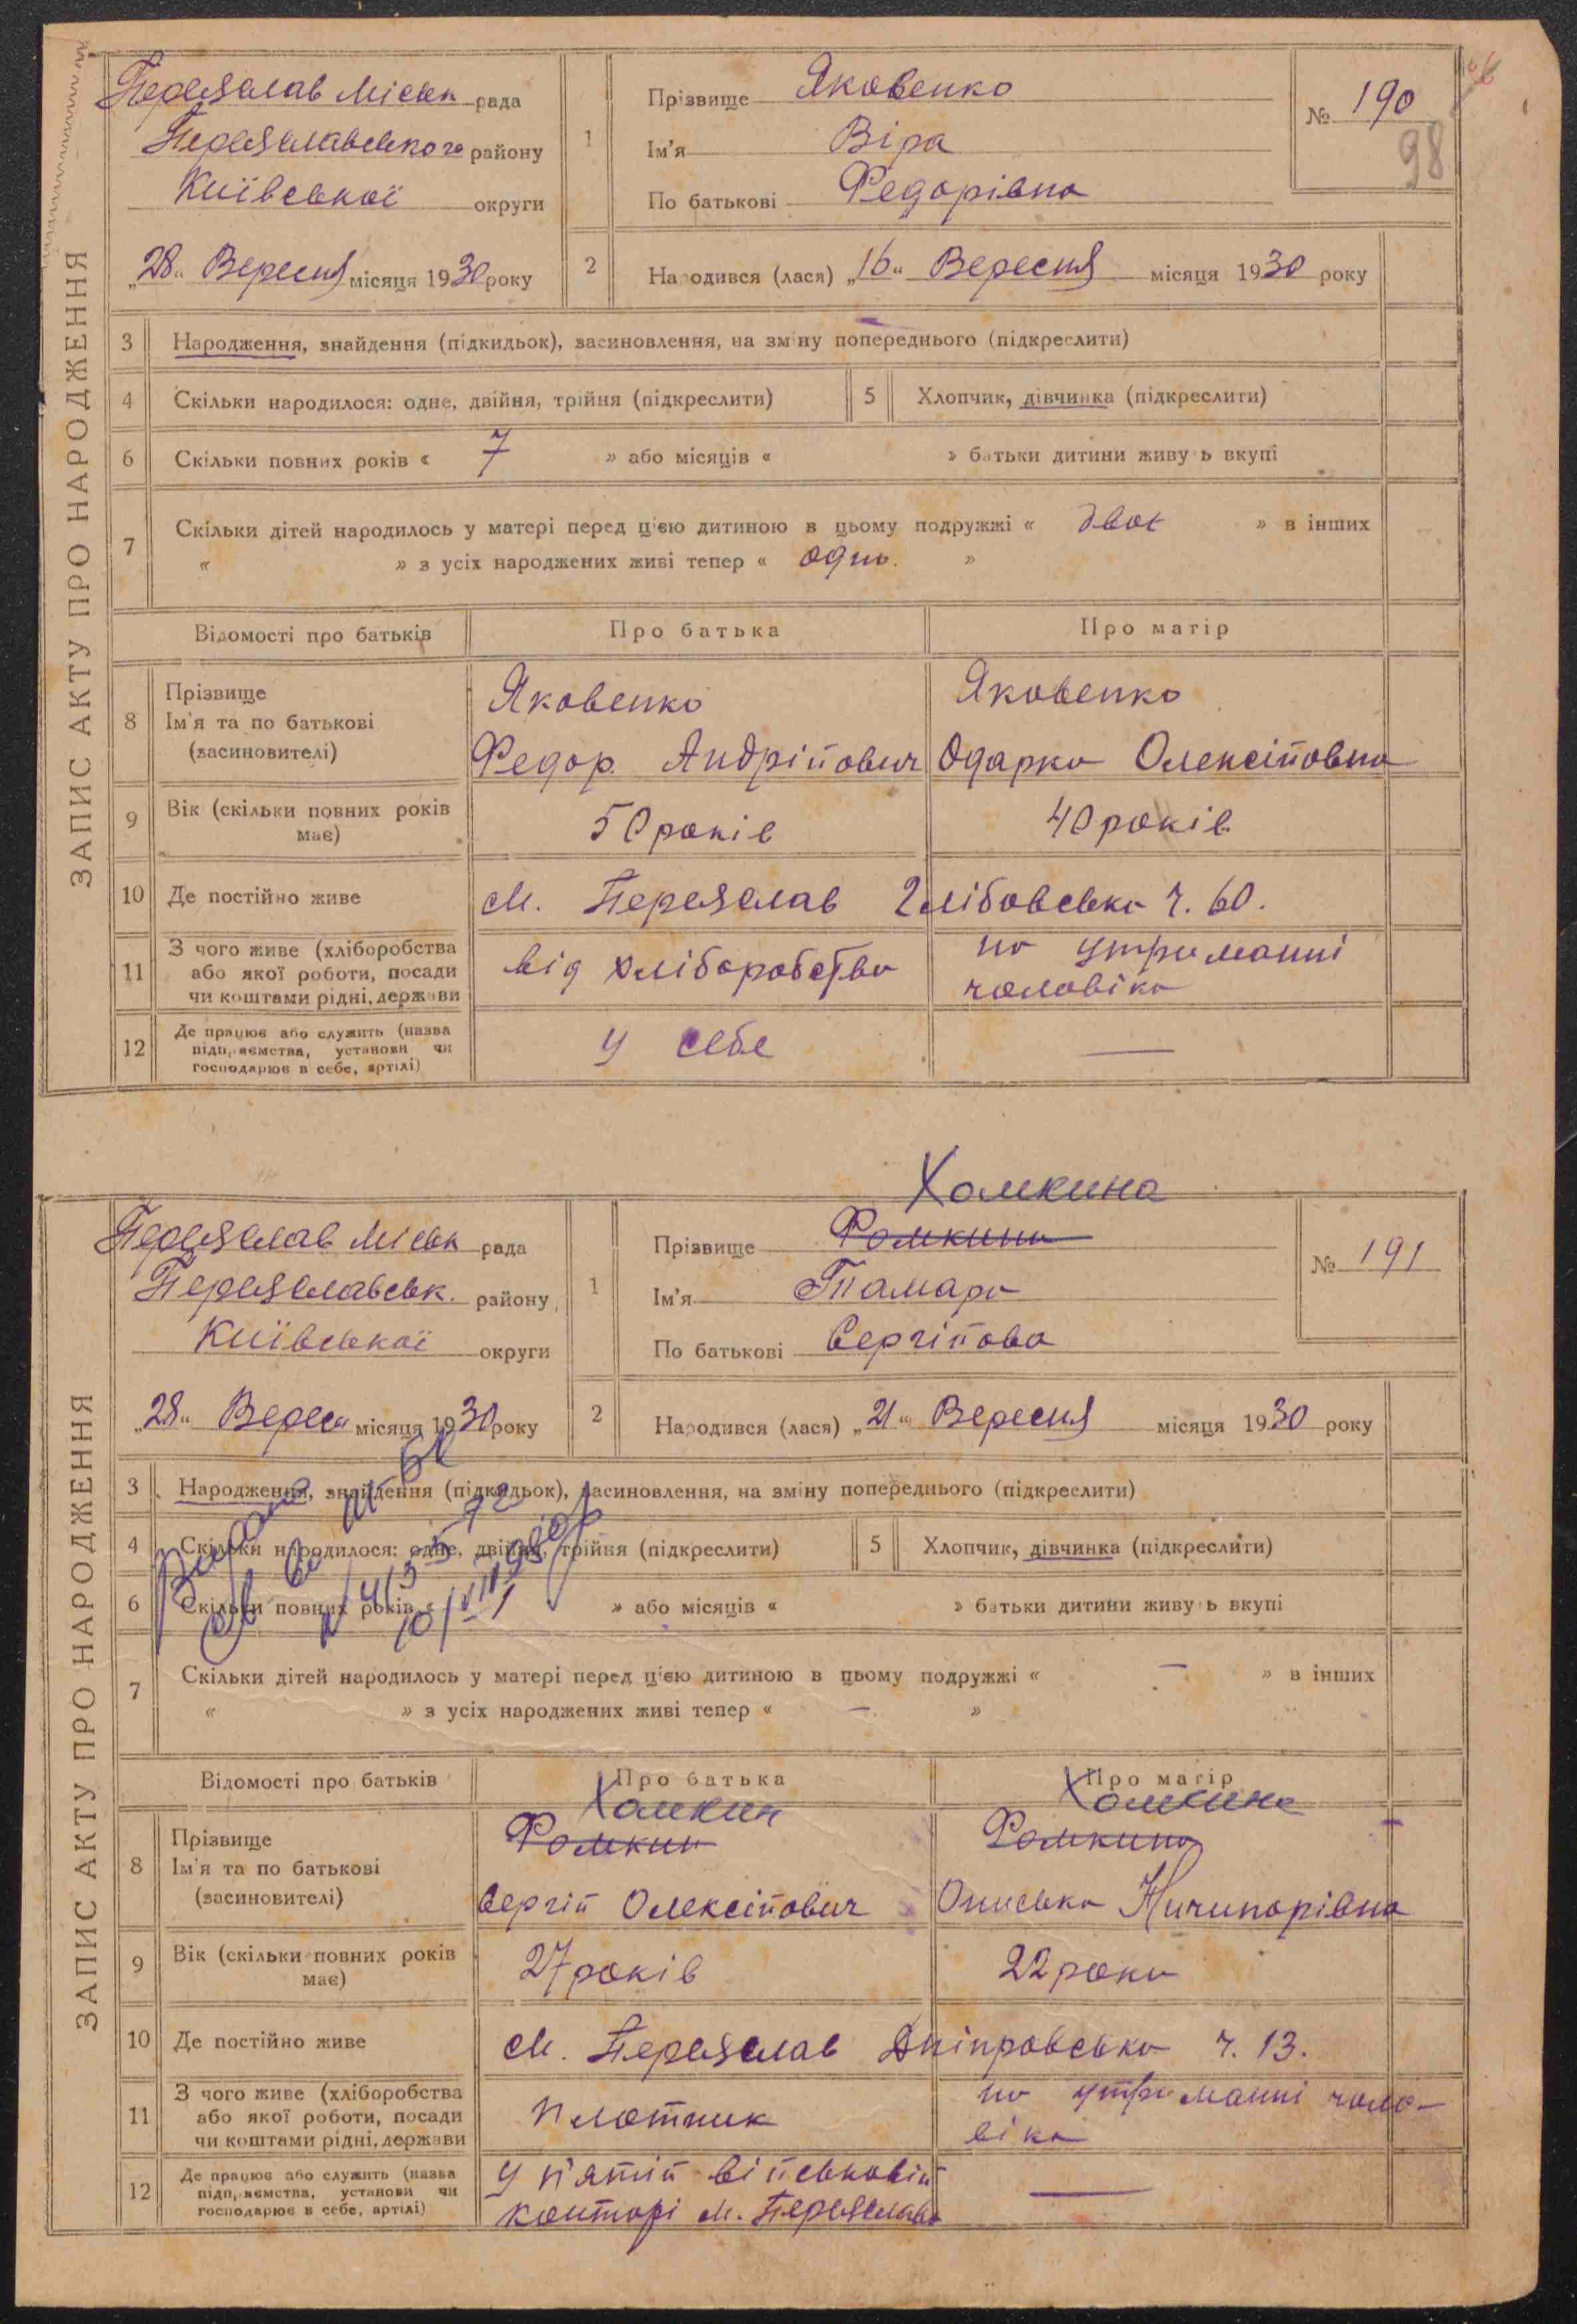 ЗАПИС АКТУ ПРО НАРОДЖЕННЯ
Переяслав Міськ рада
Переяславського району
Київської округи
„28" Вересня місяця 1930 року
1 Прізвище Яковенко
Ім'я Віра
По батькові Федорівна
№ 190
98
2 Народився (лася) „16" Вересня місяця 1930 року
3 Народження, знайдення (підкидьок), засиновлення, на зміну попереднього (підкреслити)
4 Скільки народилося: одне, двійня, трійня (підкреслити) 5 Хлопчик, дівчинка (підкреслити)
6 Скільки повних років « 7 » або місяців « » батьки дитини живуть вкупі
7 Скільки дітей народилось у матері перед цією дитиною в цьому подружжі « двоє » в інших
« » з усіх народжених живі тепер « одно. »
Відомості про батьків Про батька Про матір
8 Прізвище
Ім'я та по батькові
(засиновителі)
Яковенко
Федор Андрійович
Яковенко
Одарка Олексіївна
9 Вік (скільки повних років
має)
50 років
40 років
10 Де постійно живе м. Переяслав Глібовська ч. 60.
11 З чого живе (хліборобства
або якої роботи, посади
чи коштами рідні, держави
від хліборобства
на утриманні
чоловіка
12 Де працює або служить (назва
підприємства, установи чи
господарює в себе, артілі)
у себе
—
ЗАПИС АКТУ ПРО НАРОДЖЕННЯ
Переяслав Міськ рада
Переяславськ. району
Київської округи
„28" Вересн місяця 1930 року
Хомкина
1 Прізвище Фомкина
Ім'я Тамара
По батькові Сергійова
№ 191
2 Народився (лася) „21" Вересня місяця 1930 року
3 Народження, знайдення (підкидьок), засиновлення, на зміну попереднього (підкреслити)
4 Скільки народилося: одне, двійня, трійня (підкреслити) 5 Хлопчик, дівчинка (підкреслити)
6 Скільки повних років « » або місяців « » батьки дитини живуть вкупі
7 Скільки дітей народилось у матері перед цією дитиною в цьому подружжі « — » в інших
« » з усіх народжених живі тепер « — »
Відомості про батьків Про батька Про матір
8 Прізвище
Ім'я та по батькові
(засиновителі)
Хомкин
Фомкин
Сергій Олексійович
Хомкина
Фомкина
Ониська Ничипорівна
9 Вік (скільки повних років
має)
27 років
22 роки
10 Де постійно живе м. Переяслав Дніпровська ч. 13.
11 З чого живе (хліборобства
або якої роботи, посади
чи коштами рідні, держави
плотник
на утриманні чоло-
віка
12 Де працює або служить (назва
підприємства, установи чи
господарює в себе, артілі)
у п'ятій військовій
конторі м. Переяслава
—